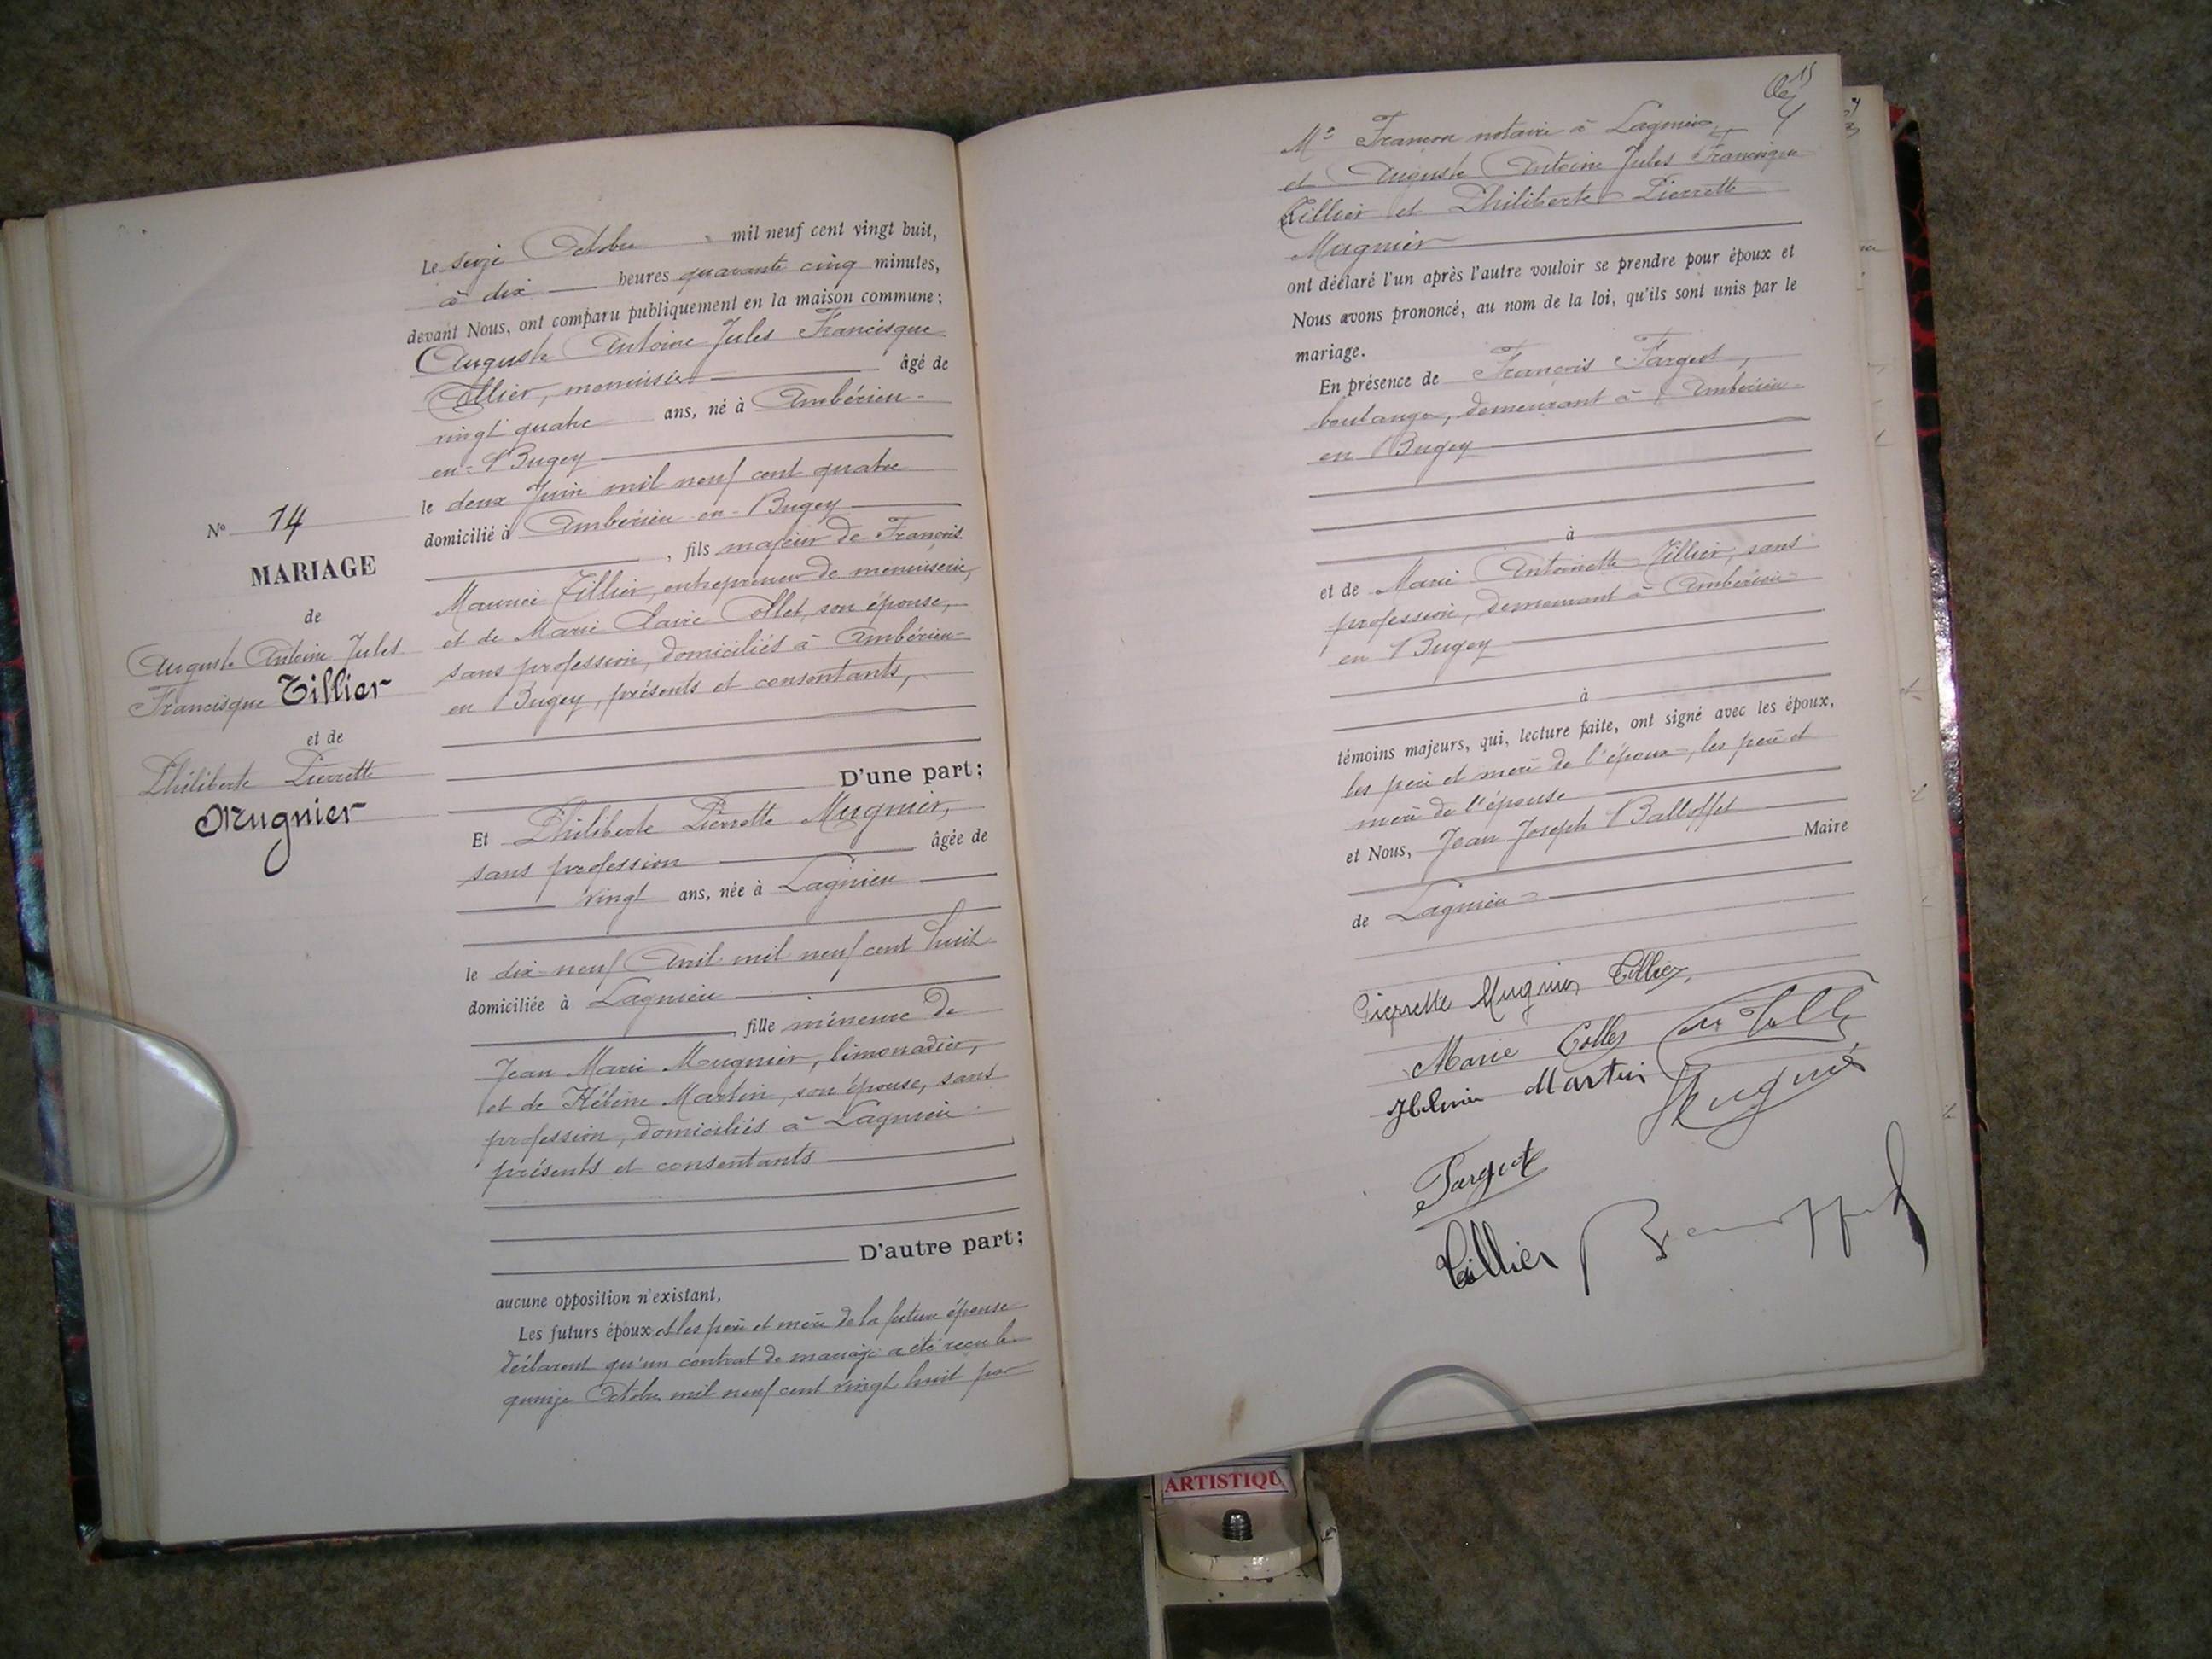 Nº 14
MARIAGE
de
Auguste Antoine Jules
Francisque Tillier
et de
Philiberte Pierrette
Mugnier
Le seize Octobre mil neuf cent vingt huit,
à dix heures quarante cinq minutes,
devant Nous, ont comparu publiquement en la maison commune:
Auguste Antoine Jules Francisque
Tillier, menuisier âgé de
vingt quatre ans, né à Ambérieu-
en-Bugey
le deux Juin mil neuf cent quatre
domicilié à Ambérieu-en-Bugey
, fils majeur de François
Maurice Tillier, entrepreneur de menuiserie,
et de Marie Claire Collet, son épouse,
sans profession, domiciliés à Ambérieu-
en Bugey, présents et consentants,
D'une part;
Et Philiberte Pierrette Mugnier,
sans profession âgée de
vingt ans, née à Lagnieu
le dix-neuf Avril mil neuf cent huit
domiciliée à Lagnieu
, fille mineure de
Jean Marie Mugnier, limonadier,
et de Hélène Martin, son épouse, sans
profession, domiciliés à Lagnieu
présents et consentants
D'autre part;
aucune opposition n'existant,
Les futurs époux et les père et mère de la future épouse
déclarent qu'un contrat de mariage a été reçu le
quinze Octobre mil neuf cent vingt huit par
15
Mº Françon notaire à Lagnieu
et Auguste Antoine Jules Francisque
Tillier et Philiberte Pierrette
Mugnier
ont déclaré l'un après l'autre vouloir se prendre pour époux et
Nous avons prononcé, au nom de la loi, qu'ils sont unis par le
mariage.
En présence de François Fargeot,
boulanger, demeurant à Ambérieu-
en Bugey
à
et de Marie Antoinette Tillier, sans
profession, demeurant à Ambérieu-
en Bugey
à
témoins majeurs, qui, lecture faite, ont signé avec les époux,
les père et mère de l'époux, les père et
mère de l'épouse
et Nous, Jean Joseph Balloffet Maire
de Lagnieu
Pierrette Mugnier Tillier
Marie Collet
Martin Mugnier
Fargeot
Tillier
ARTISTIQU